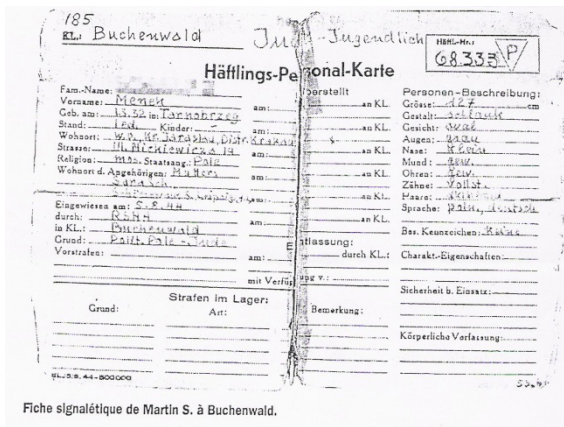 185
KL.: Buchenwald
Jude - Jugendlich
Häftl.-Nr.:
68.333 P
Häftlings-Personal-Karte
Fam.-Name:
Vorname: Menek
Geb. am: 1.5.32 in: Tarnobrzeg
Stand: led. Kinder: -
Wohnort: Kr. Jaroslau, Distr. Krakau
Strasse: Mickiewicza 14
Religion: mos. Staatsang.: Pole
Wohnort d. Angehörigen: Mutter:
Eingewiesen am: 5.8.44
durch: RSHA
in KL.: Buchenwald
Grund: Polit. Pole - Jude
Vorstrafen:
am:
am:
am:
am:
am:
am:
am:
mit Verfüg
Strafen im Lager:
Grund: Art:
KL./5/6.44-500000
überstellt
an KL.
an KL.
an KL.
an KL.
an KL.
an KL.
Entlassung:
durch KL.:
ung v.:
Bemerkung:
Personen-Beschreibung:
Grösse: 127 cm
Gestalt: schlank
Gesicht: oval
Augen: grau
Nase: klein
Mund: gew.
Ohren: gew.
Zähne: vollst.
Haare:
Sprache: poln., deutsch
Bes. Kennzeichen: Keine
Charakt.-Eigenschaften:
Sicherheit b. Einsatz:
Körperliche Verfassung:
Fiche signalétique de Martin S. à Buchenwald.